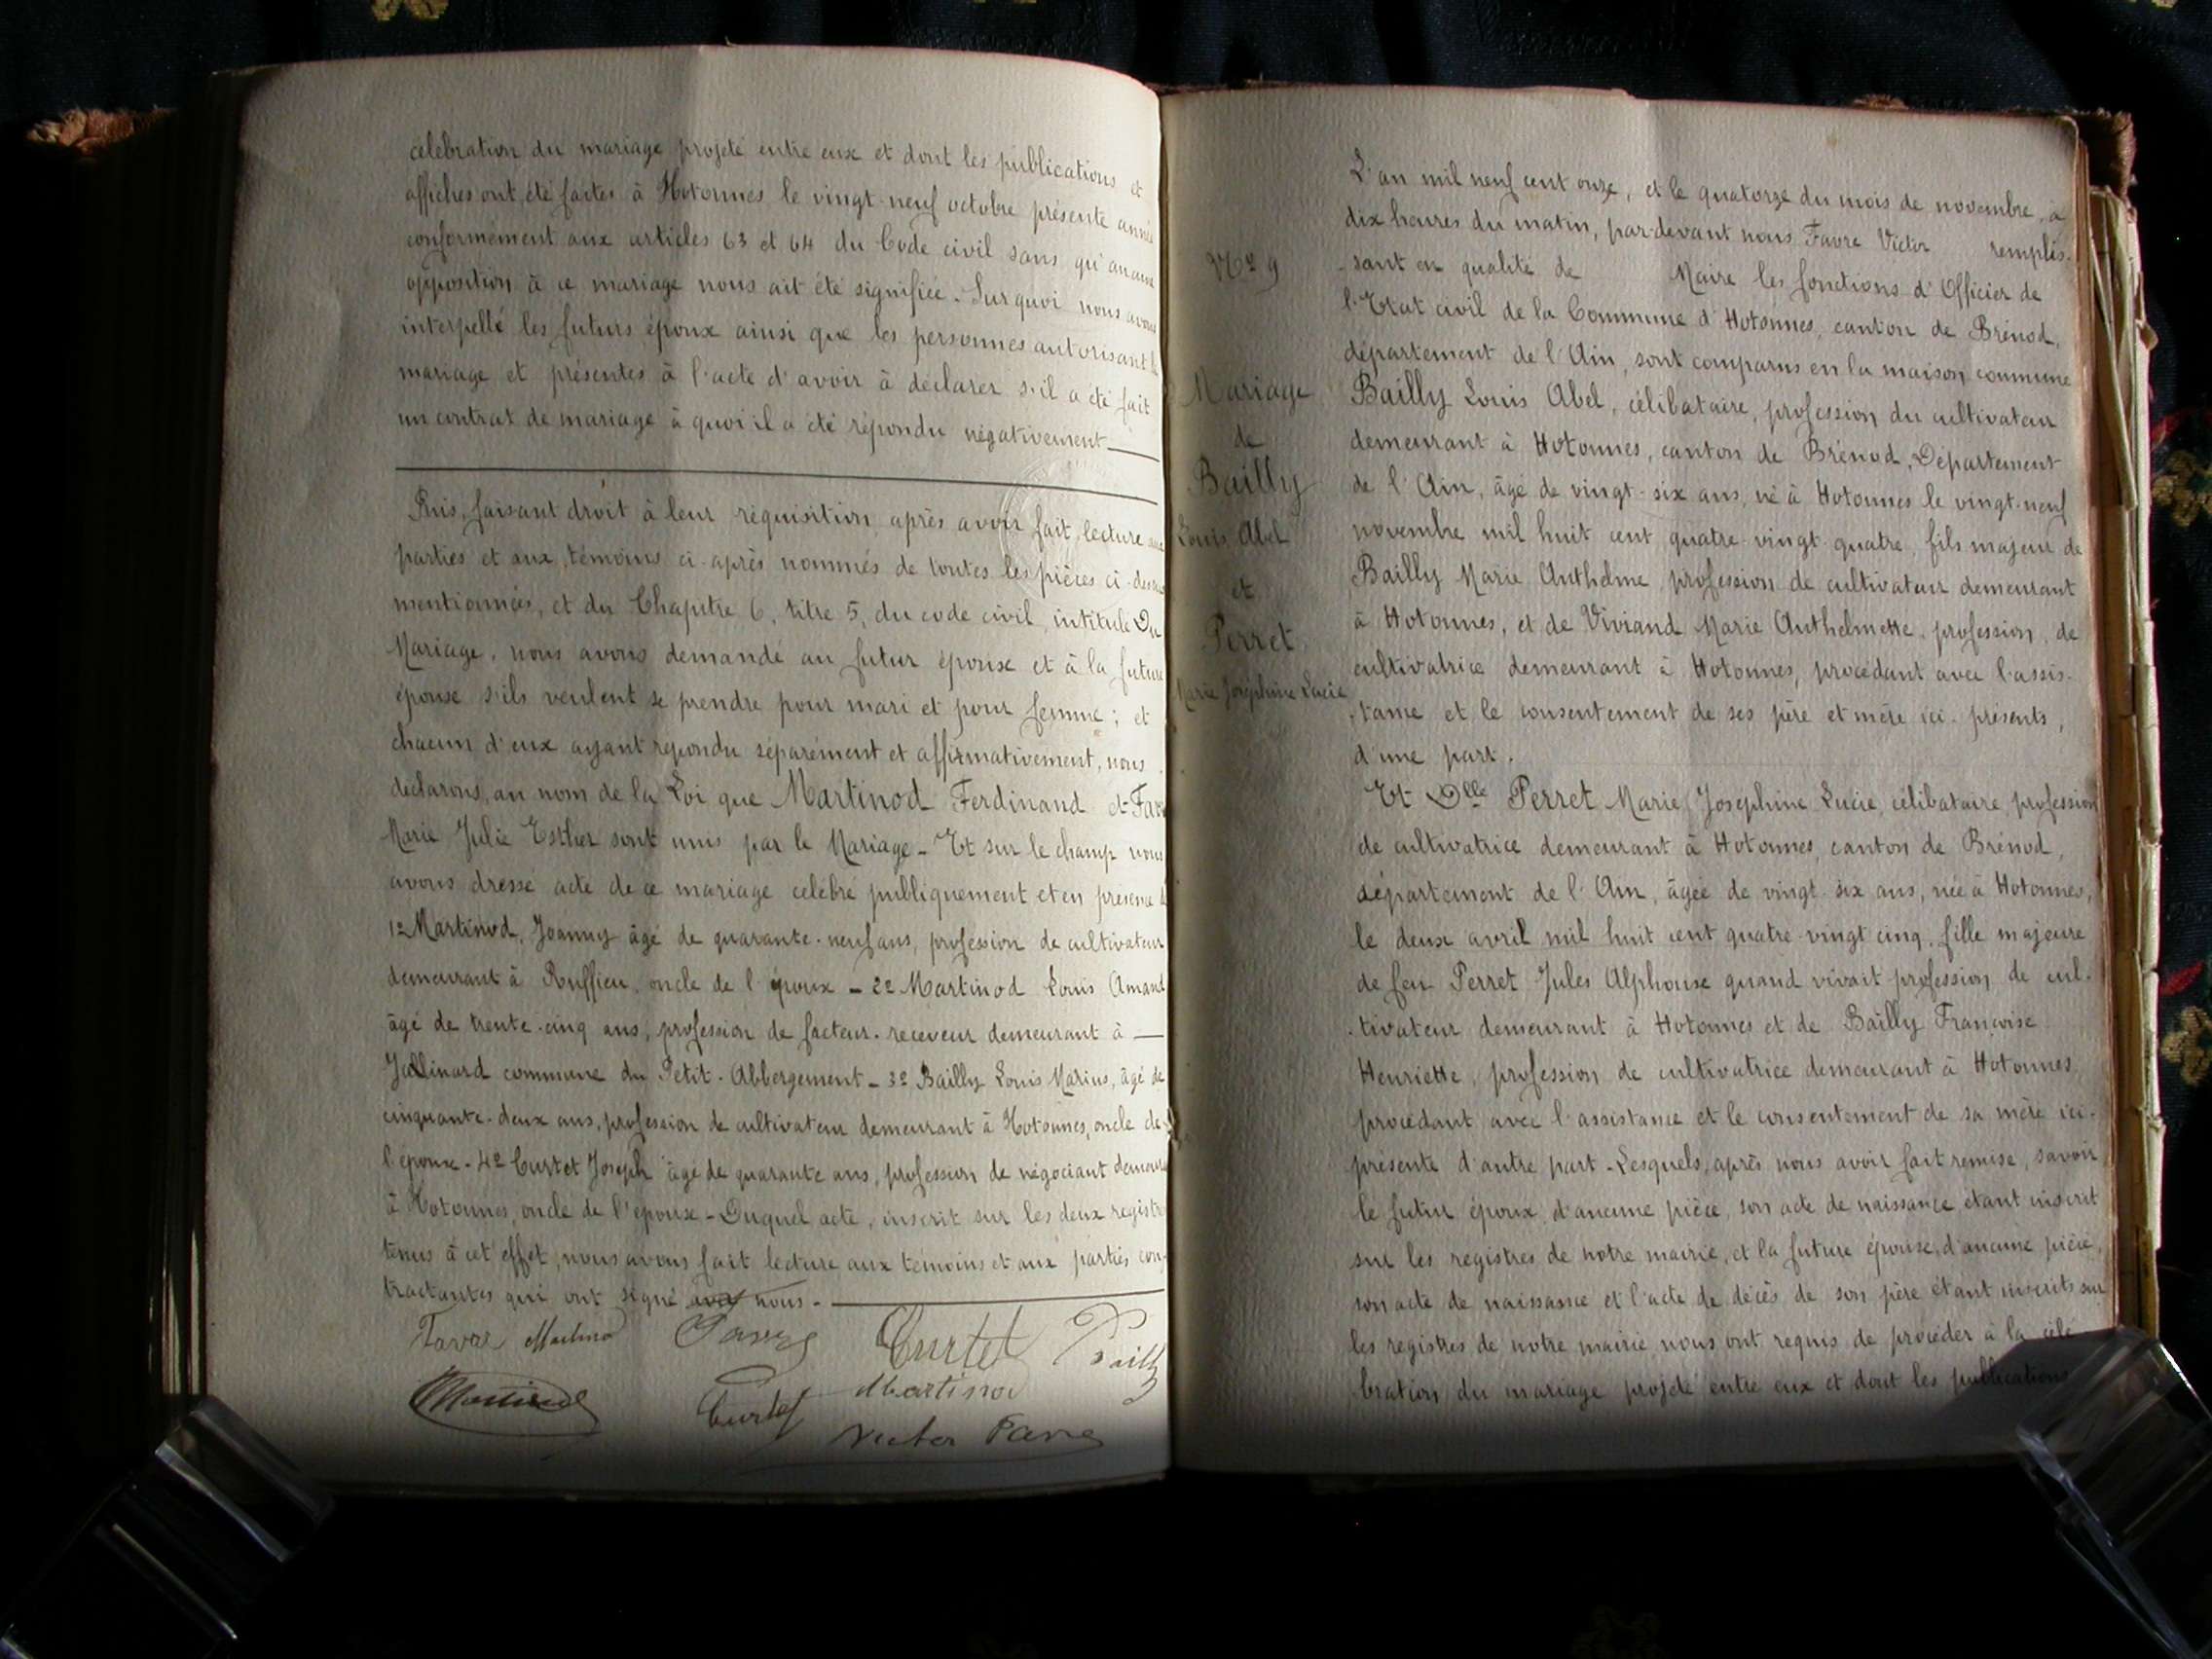 célébration du mariage projeté entre eux et dont les publications et
affiches ont été faites à Hotonnes le vingt-neuf octobre présente année
conformément aux articles 63 et 64 du Code civil sans qu'aucune
opposition à ce mariage nous ait été signifiée. Sur quoi nous avons
interpellé les futurs époux ainsi que les personnes autorisant le
mariage et présentes à l'acte d'avoir à déclarer s'il a été fait
un contrat de mariage à quoi il a été répondu négativement
Puis, faisant droit à leur réquisition, après avoir fait lecture aux
parties et aux témoins ci-après nommés de toutes les pièces ci-dessus
mentionnées, et du Chapitre 6, titre 5, du code civil, intitulé Du
Mariage, nous avons demandé au futur époux et à la future
épouse s'ils veulent se prendre pour mari et pour femme ; et
chacun d'eux ayant répondu séparément et affirmativement, nous
déclarons, au nom de la Loi que Martinod Ferdinand et Favre
Marie Julie Esther sont unis par le Mariage - Et sur le champ nous
avons dressé acte de ce mariage célébré publiquement et en présence de
1º Martinod, Joanny âgé de quarante-neuf ans, profession de cultivateur
demeurant à Ruffieu, oncle de l'époux - 2º Martinod Louis Amand
âgé de trente-cinq ans, profession de facteur-receveur demeurant à
Jallinard commune du Petit-Abbergement - 3º Bailly Louis Marius, âgé de
cinquante-deux ans, profession de cultivateur demeurant à Hotonnes, oncle de
l'épouse - 4º Curtet Joseph âgé de quarante ans, profession de négociant demeurant
à Hotonnes, oncle de l'épouse - Duquel acte, inscrit sur les deux registres
tenus à cet effet, nous avons fait lecture aux témoins et aux parties con-
tractantes qui ont signé avec nous.
Favre Martinod Favre Curtet Bailly
Martinod Curtet Martinod
Victor Favre
Nº 9
Mariage
de
Bailly
Louis Abel
et
Perret
Marie Joséphine Lucie
L'an mil neuf cent onze, et le quatorze du mois de novembre, à
dix heures du matin, par-devant nous Favre Victor remplis-
-sant en qualité de Maire les fonctions d'Officier de
l'Etat civil de la Commune d'Hotonnes, canton de Brénod,
département de l'Ain, sont comparus en la maison commune
Bailly Louis Abel, célibataire, profession du cultivateur
demeurant à Hotonnes, canton de Brénod, Département
de l'Ain, âgé de vingt-six ans, né à Hotonnes le vingt-neuf
novembre mil huit cent quatre-vingt-quatre, fils majeur de
Bailly Marie Anthelme, profession de cultivateur demeurant
à Hotonnes, et de Viviand Marie Anthelmette, profession, de
cultivatrice demeurant à Hotonnes, procédant avec l'assis-
-tance et le consentement de ses père et mère ici-présents,
d'une part.
Et Dlle Perret Marie Joséphine Lucie, célibataire, profession
de cultivatrice demeurant à Hotonnes, canton de Brénod,
département de l'Ain, âgée de vingt-six ans, née à Hotonnes,
le deux avril mil huit cent quatre-vingt cinq, fille majeure
de feu Perret Jules Alphonse quand vivait profession de cul-
-tivateur demeurant à Hotonnes et de Bailly Françoise
Henriette, profession de cultivatrice demeurant à Hotonnes
procédant avec l'assistance et le consentement de sa mère ici-
présente d'autre part - Lesquels, après nous avoir fait remise, savoir
le futur époux, d'aucune pièce, son acte de naissance étant inscrit
sur les registres de notre mairie, et la future épouse, d'aucune pièce,
son acte de naissance et l'acte de décès de son père étant inscrits sur
les registres de notre mairie nous ont requis de procéder à la célé-
bration du mariage projeté entre eux et dont les publications